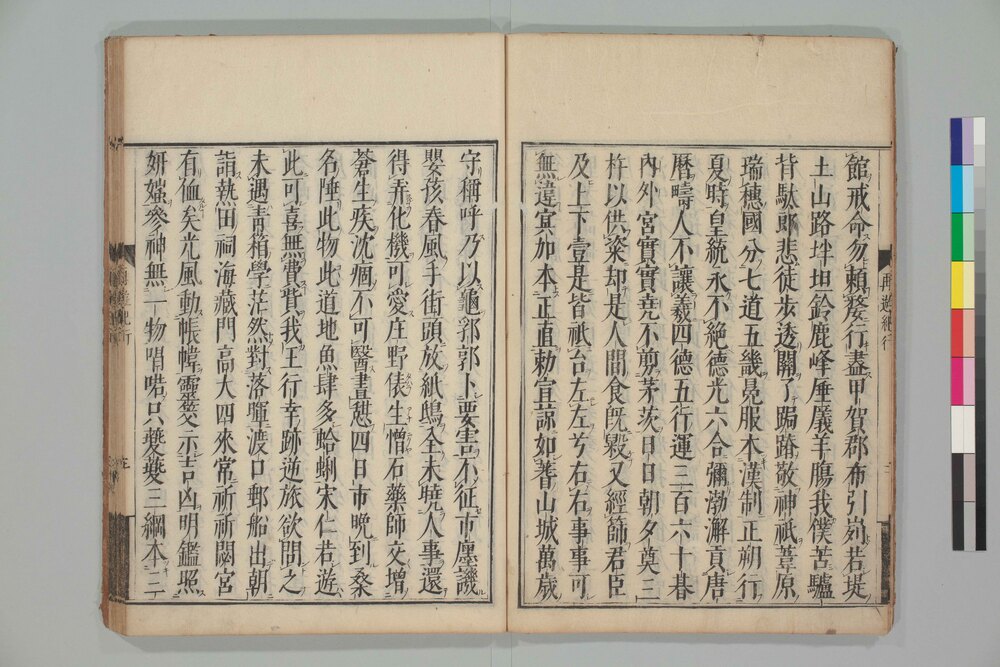 館戒命勿賴婺行盡甲賀郡布引岣若堤
土山路坢坦鈴鹿峰厜㕒羊膓我僕苦驢
背駄郎悲徒步透開了跼蹐敬神祇葦原
瑞穗國分七道五畿冕服本漢制正朔行
夏時皇統永不絕德光六合彌渤澥貢唐
曆疇人不讓羲四德五行運三百六十朞
內外宮實實堯不剪茅茨日日朝夕奠三
杵以供粢却是人間食旣毀又經篩君臣
及上下壹是皆祇台左左兮右右事事可
無違寅加本正直勅宣諒如蓍山城萬歲
守稱呼乃以龜郭郭卜要害不征市廛譏
嬰孩春風手街頭放紙鴟全未曉人事還
得弄化機可愛庄野俵生憎石藥師文增
蒼生疾沈痼不可醫書懟四日市晚到桑
名陲此物此道地魚肆多蛤蜊宋仁若遊
此可喜無費貲我王行幸跡逆旅欲問之
未遇靑箱學茫然對落暉渡口郵船出朝
詣熱田祠海藏門高大四來常祈祈閟宮
有侐矣光風動帳幃靈爽示吉凶明鑑照
妍媸參神無一物唱喏只夔夔三綱本三
再遊紀行
三